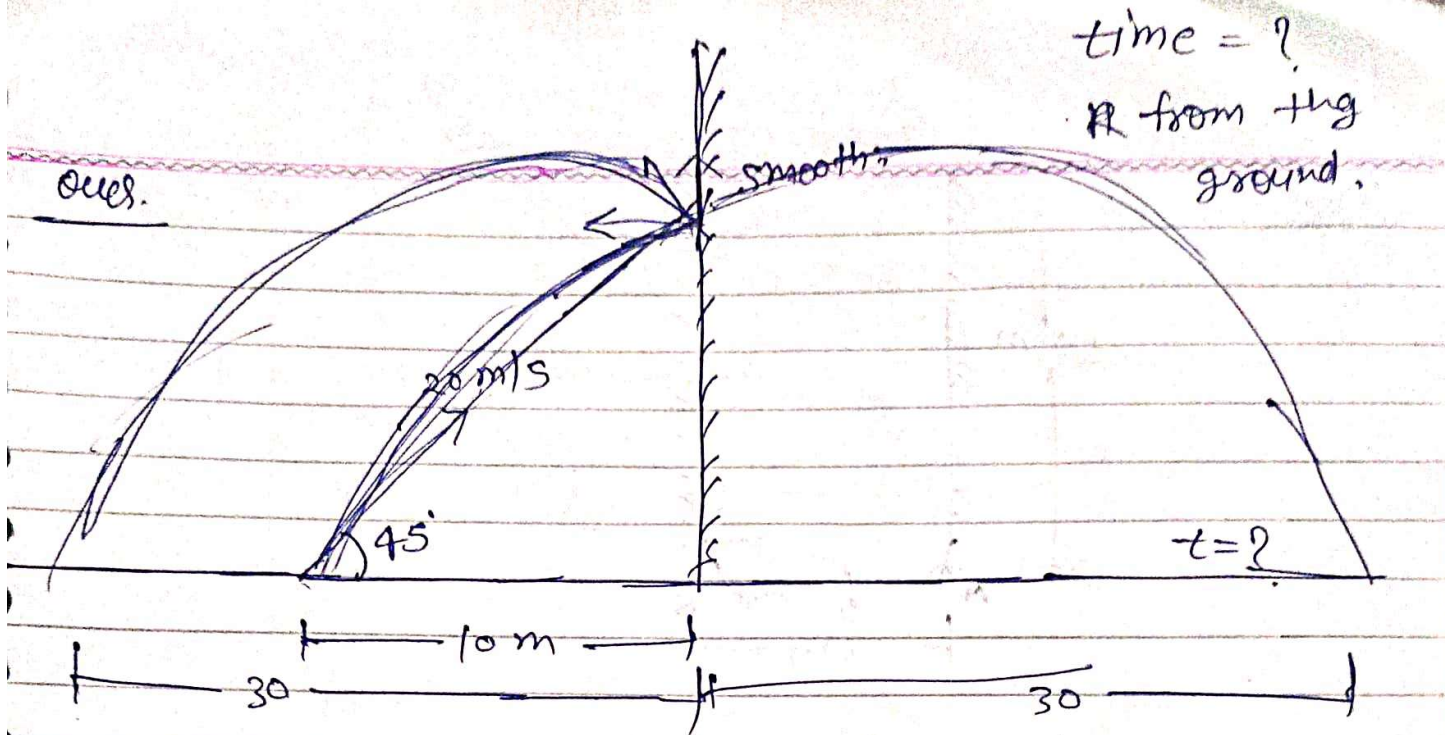 time = ?
R from the
ground.
Ques.
smooth.
20 m/s
45°
t=?
10 m
30
30